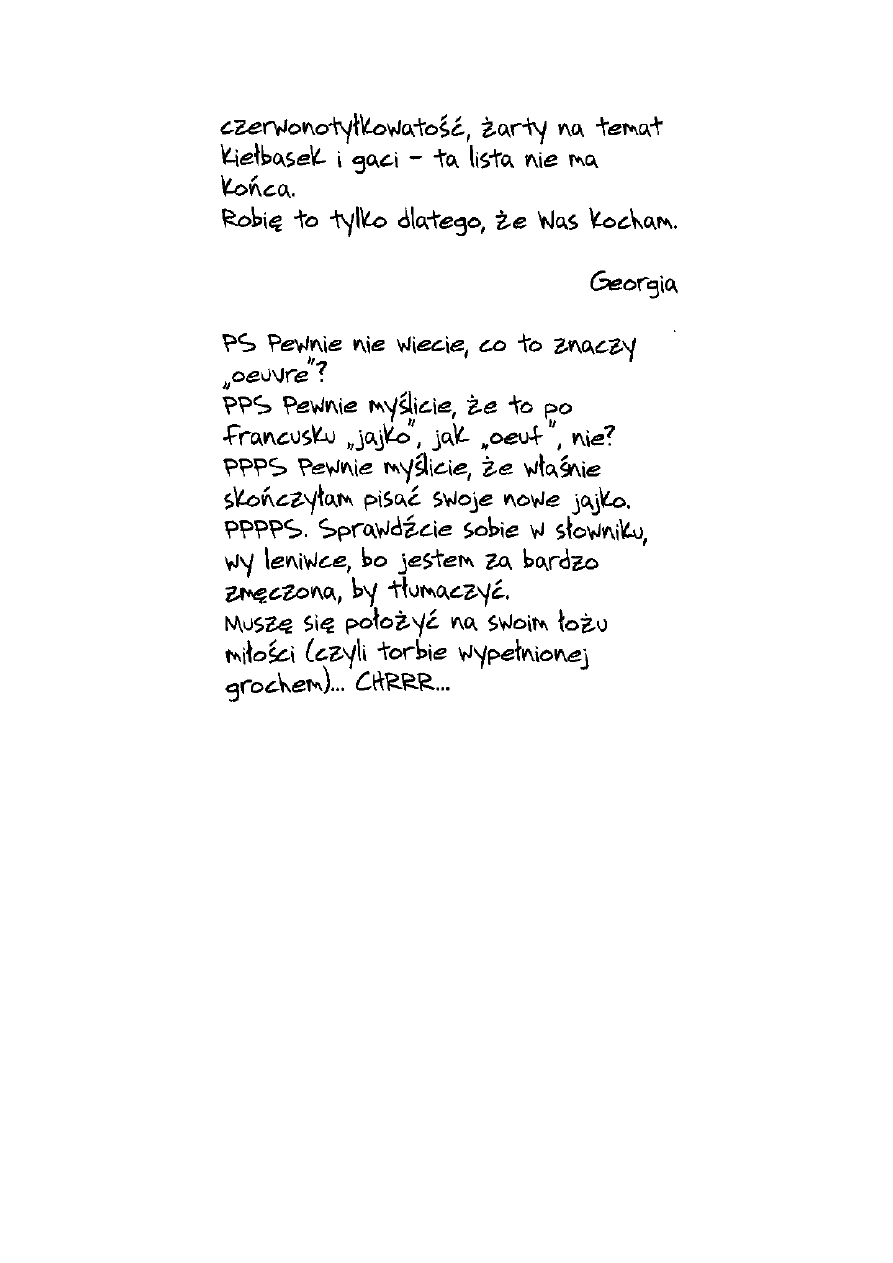 czerwonotyłkowatość, żarty na temat
kiełbasek i gaci – ta lista nie ma
końca.
Robię to tylko dlatego, że Was kocham.
Georgia
PS Pewnie nie wiecie, co to znaczy
„oeuvre”?
PPS Pewnie myślicie, że to po
francusku „jajko”, jak „oeuf”, nie?
PPPS Pewnie myślicie, że właśnie
skończyłam pisać swoje nowe jajko.
PPPPS. Sprawdźcie sobie w słowniku,
wy leniwce, bo jestem za bardzo
zmęczona, by tłumaczyć.
Muszę się położyć na swoim łożu
miłości (czyli torbie wypełnionej
grochem)... CHRRR...